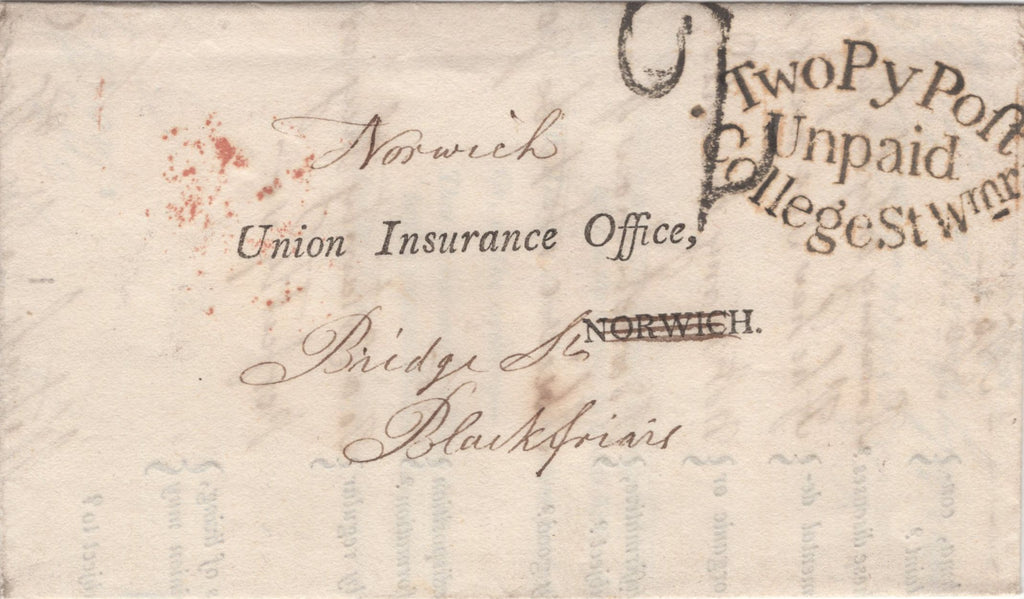 Two Py Post
Unpaid
College St Wmr
2
Norwich
Union Insurance Office,
NORWICH.
Bridge St
Blackfriars